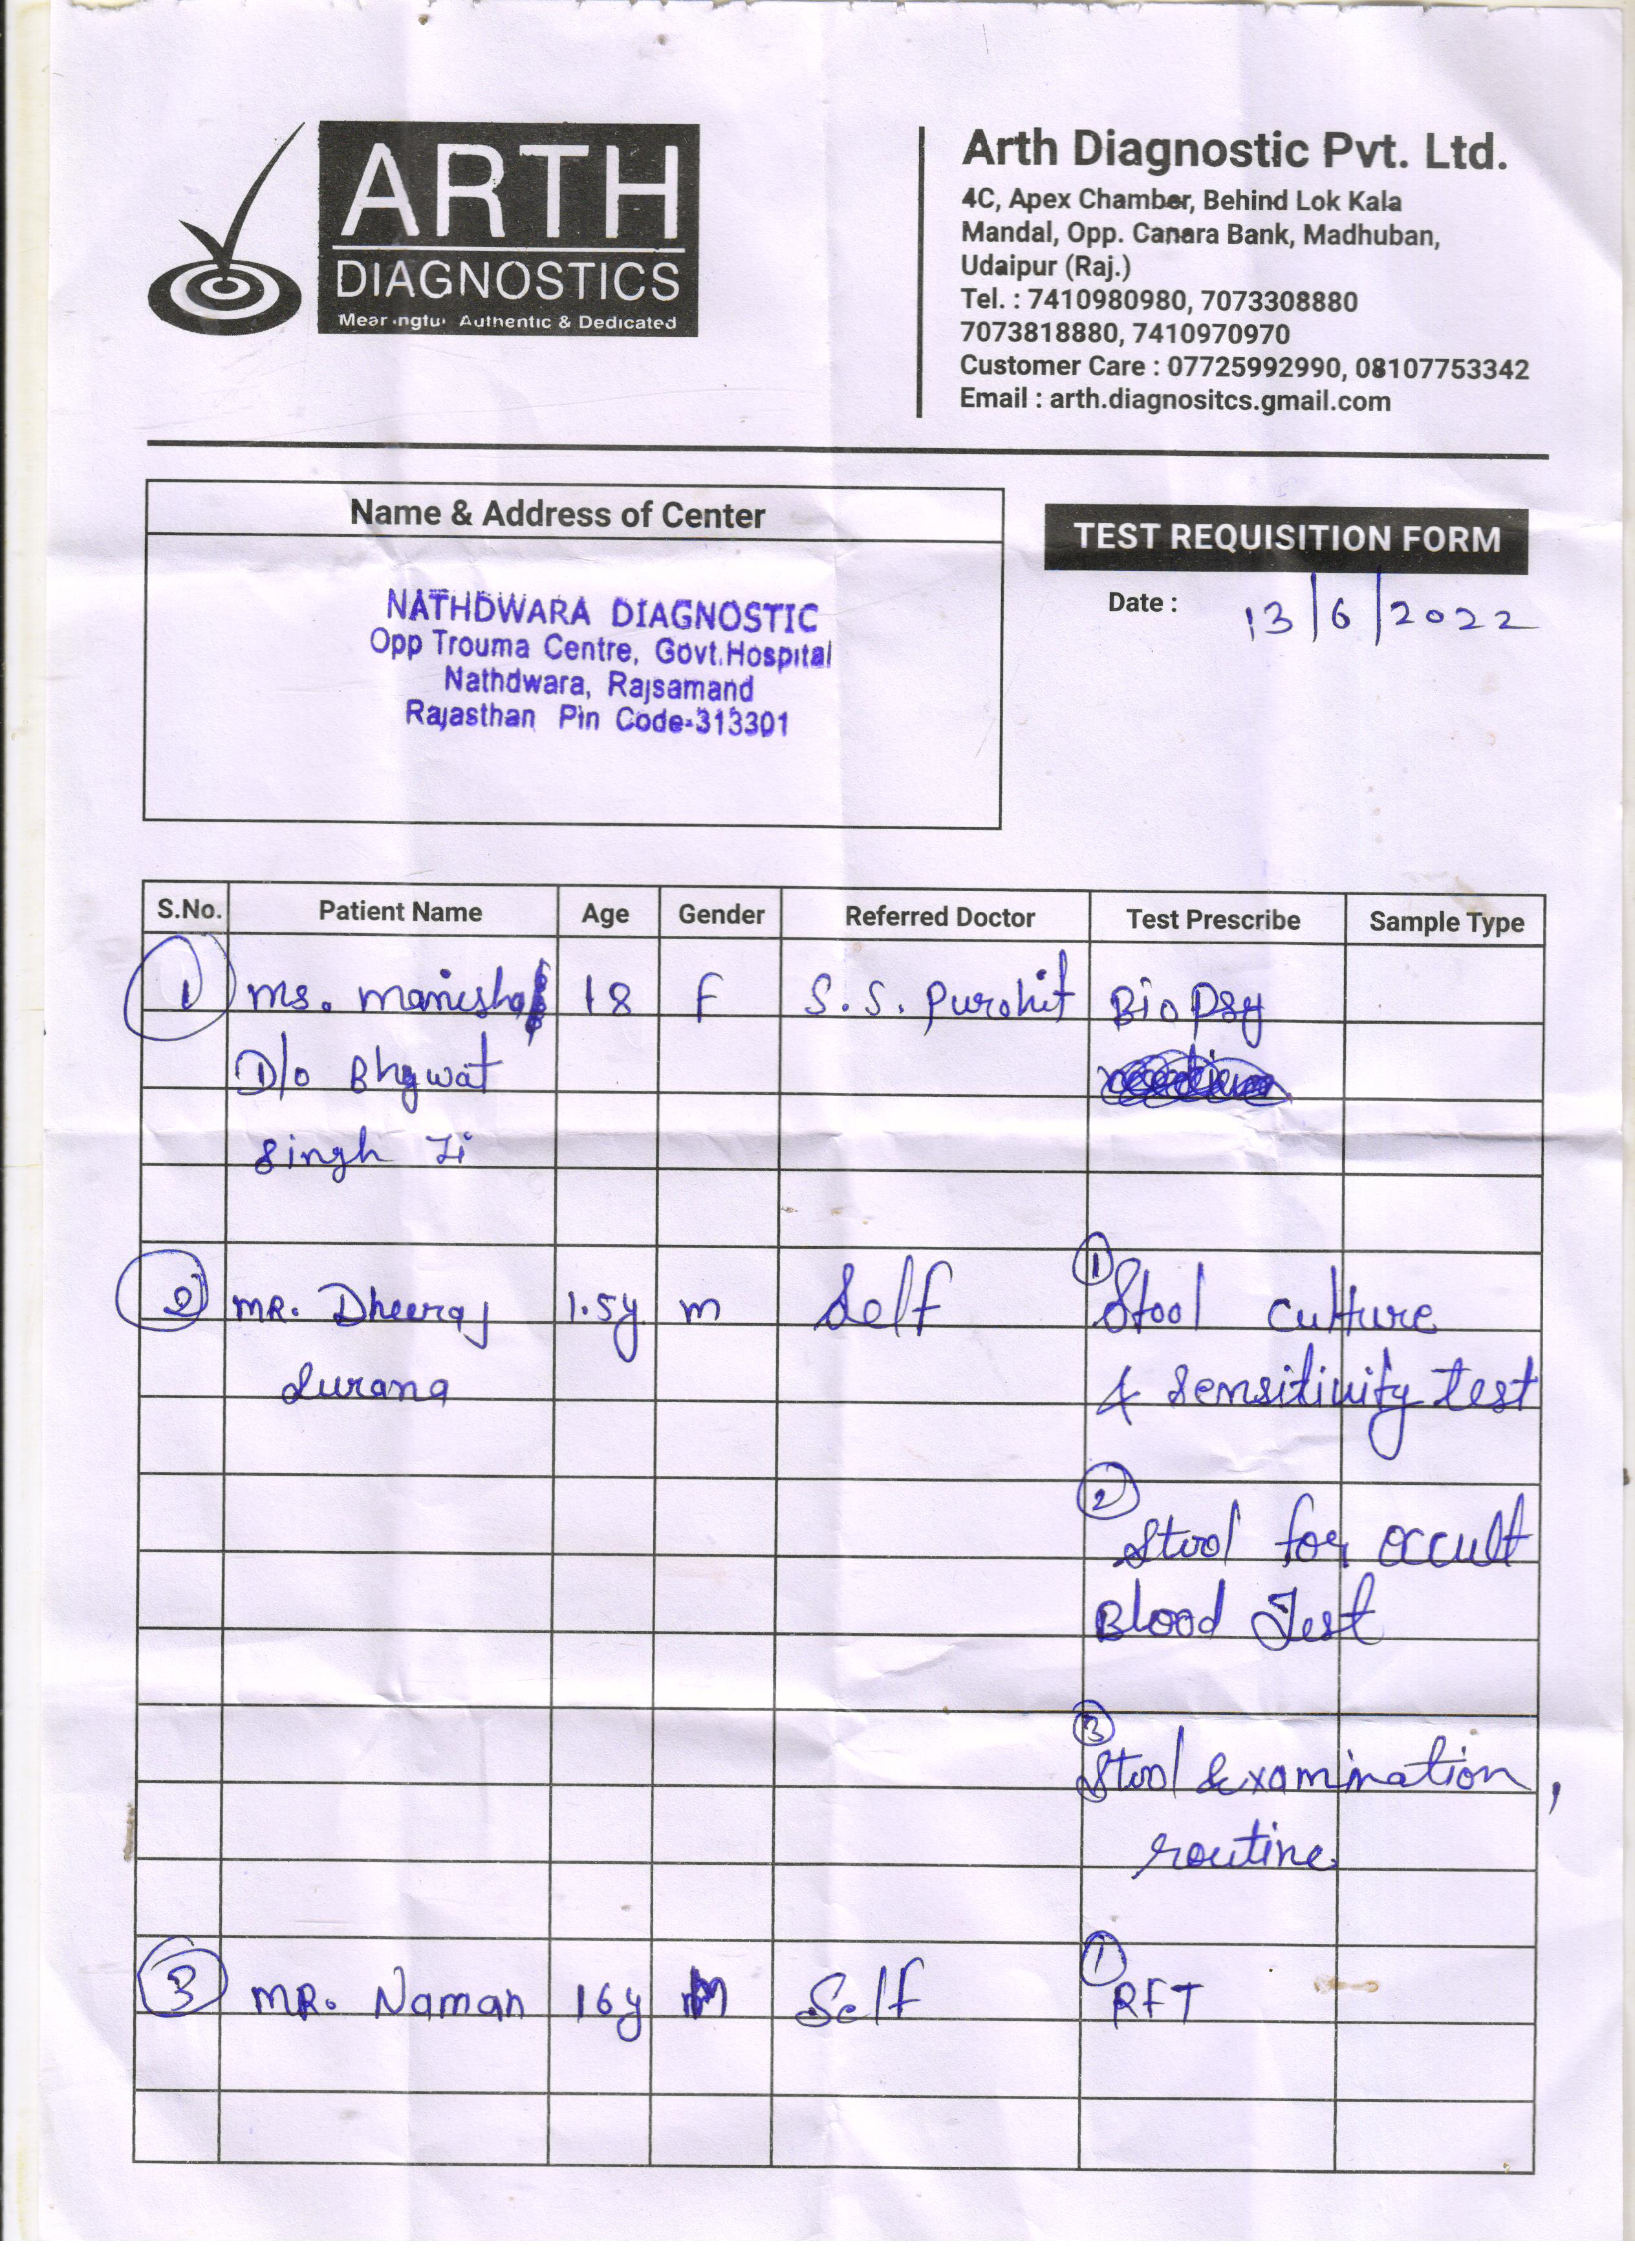 ARTH
DIAGNOSTICS
Authentic & Dedicated
Arth Diagnostic Pvt. Ltd.
4C, Apex Chamber, Behind Lok Kala
Mandal, Opp. Canara Bank, Madhuban,
Udaipur (Raj.)
Tel. : 7410980980, 7073308880
7073818880, 7410970970
Customer Care : 07725992990, 08107753342
Email : arth.diagnositcs.gmail.com
Name & Address of Center
NATHDWARA DIAGNOSTIC
Opp Trouma Centre, Govt.Hospital
Nathdwara, Rajsamand
Rajasthan Pin Code-313301
TEST REQUISITION FORM
Date : 13/6/2022
S.No. Patient Name Age Gender Referred Doctor Test Prescribe Sample Type
1 Ms. Manisha 18 F S.S. Purohit Biopsy
D/o Bhgwat
Singh Ji
2 MR. Dheeraj 1.5y m Self 1 Stool culture
Surana & sensitivity test
2 Stool for occult
Blood Test
3 Stool Examination,
routine
3 MR. Naman 16y M Self 1 RFT